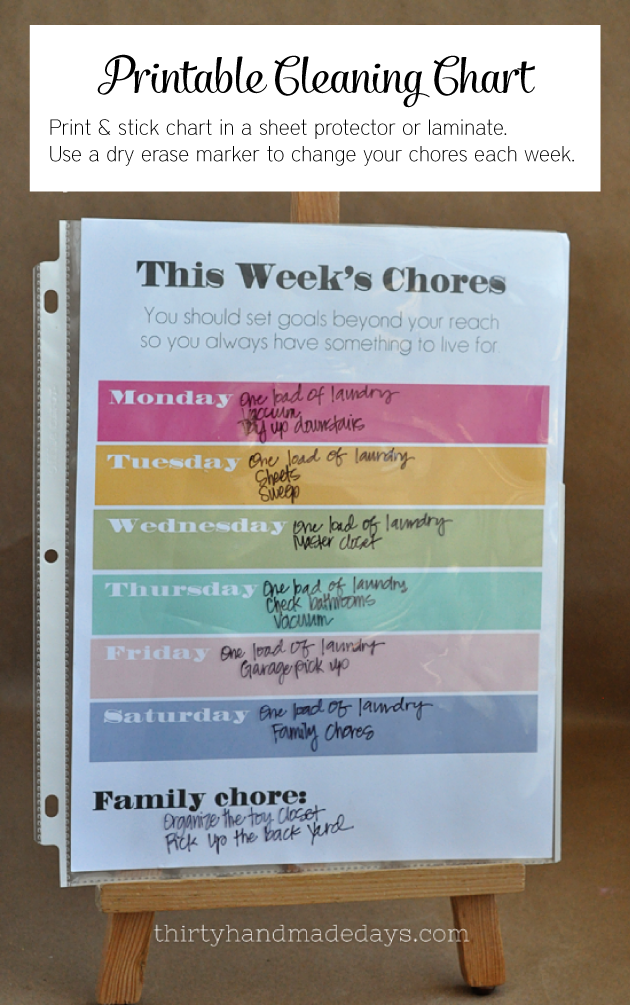 Printable Cleaning Chart
Print & stick chart in a sheet protector or laminate.
Use a dry erase marker to change your chores each week.
This Week's Chores
You should set goals beyond your reach
so you always have something to live for
Monday One load of laundry
Vacuum
Tidy up downstairs
Tuesday One load of laundry
Sheets
Sweep
Wednesday One load of laundry
Master closet
Thursday One load of laundry
Check bathrooms
Vacuum
Friday One load of laundry
Garage pick up
Saturday One load of laundry
Family Chores
Family chore:
Organize the toy closet
Pick up the back yard
thirtyhandmadedays.com